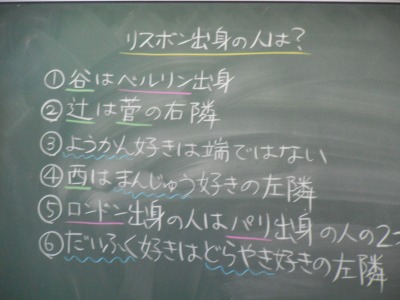 リスボン出身の人は?
①谷はベルリン出身
②辻は菅の右隣
③ようかん好きは端ではない
④西はまんじゅう好きの左隣
⑤ロンドン出身の人はパリ出身の人の2つ
⑥だいふく好きはどらやき好きの左隣